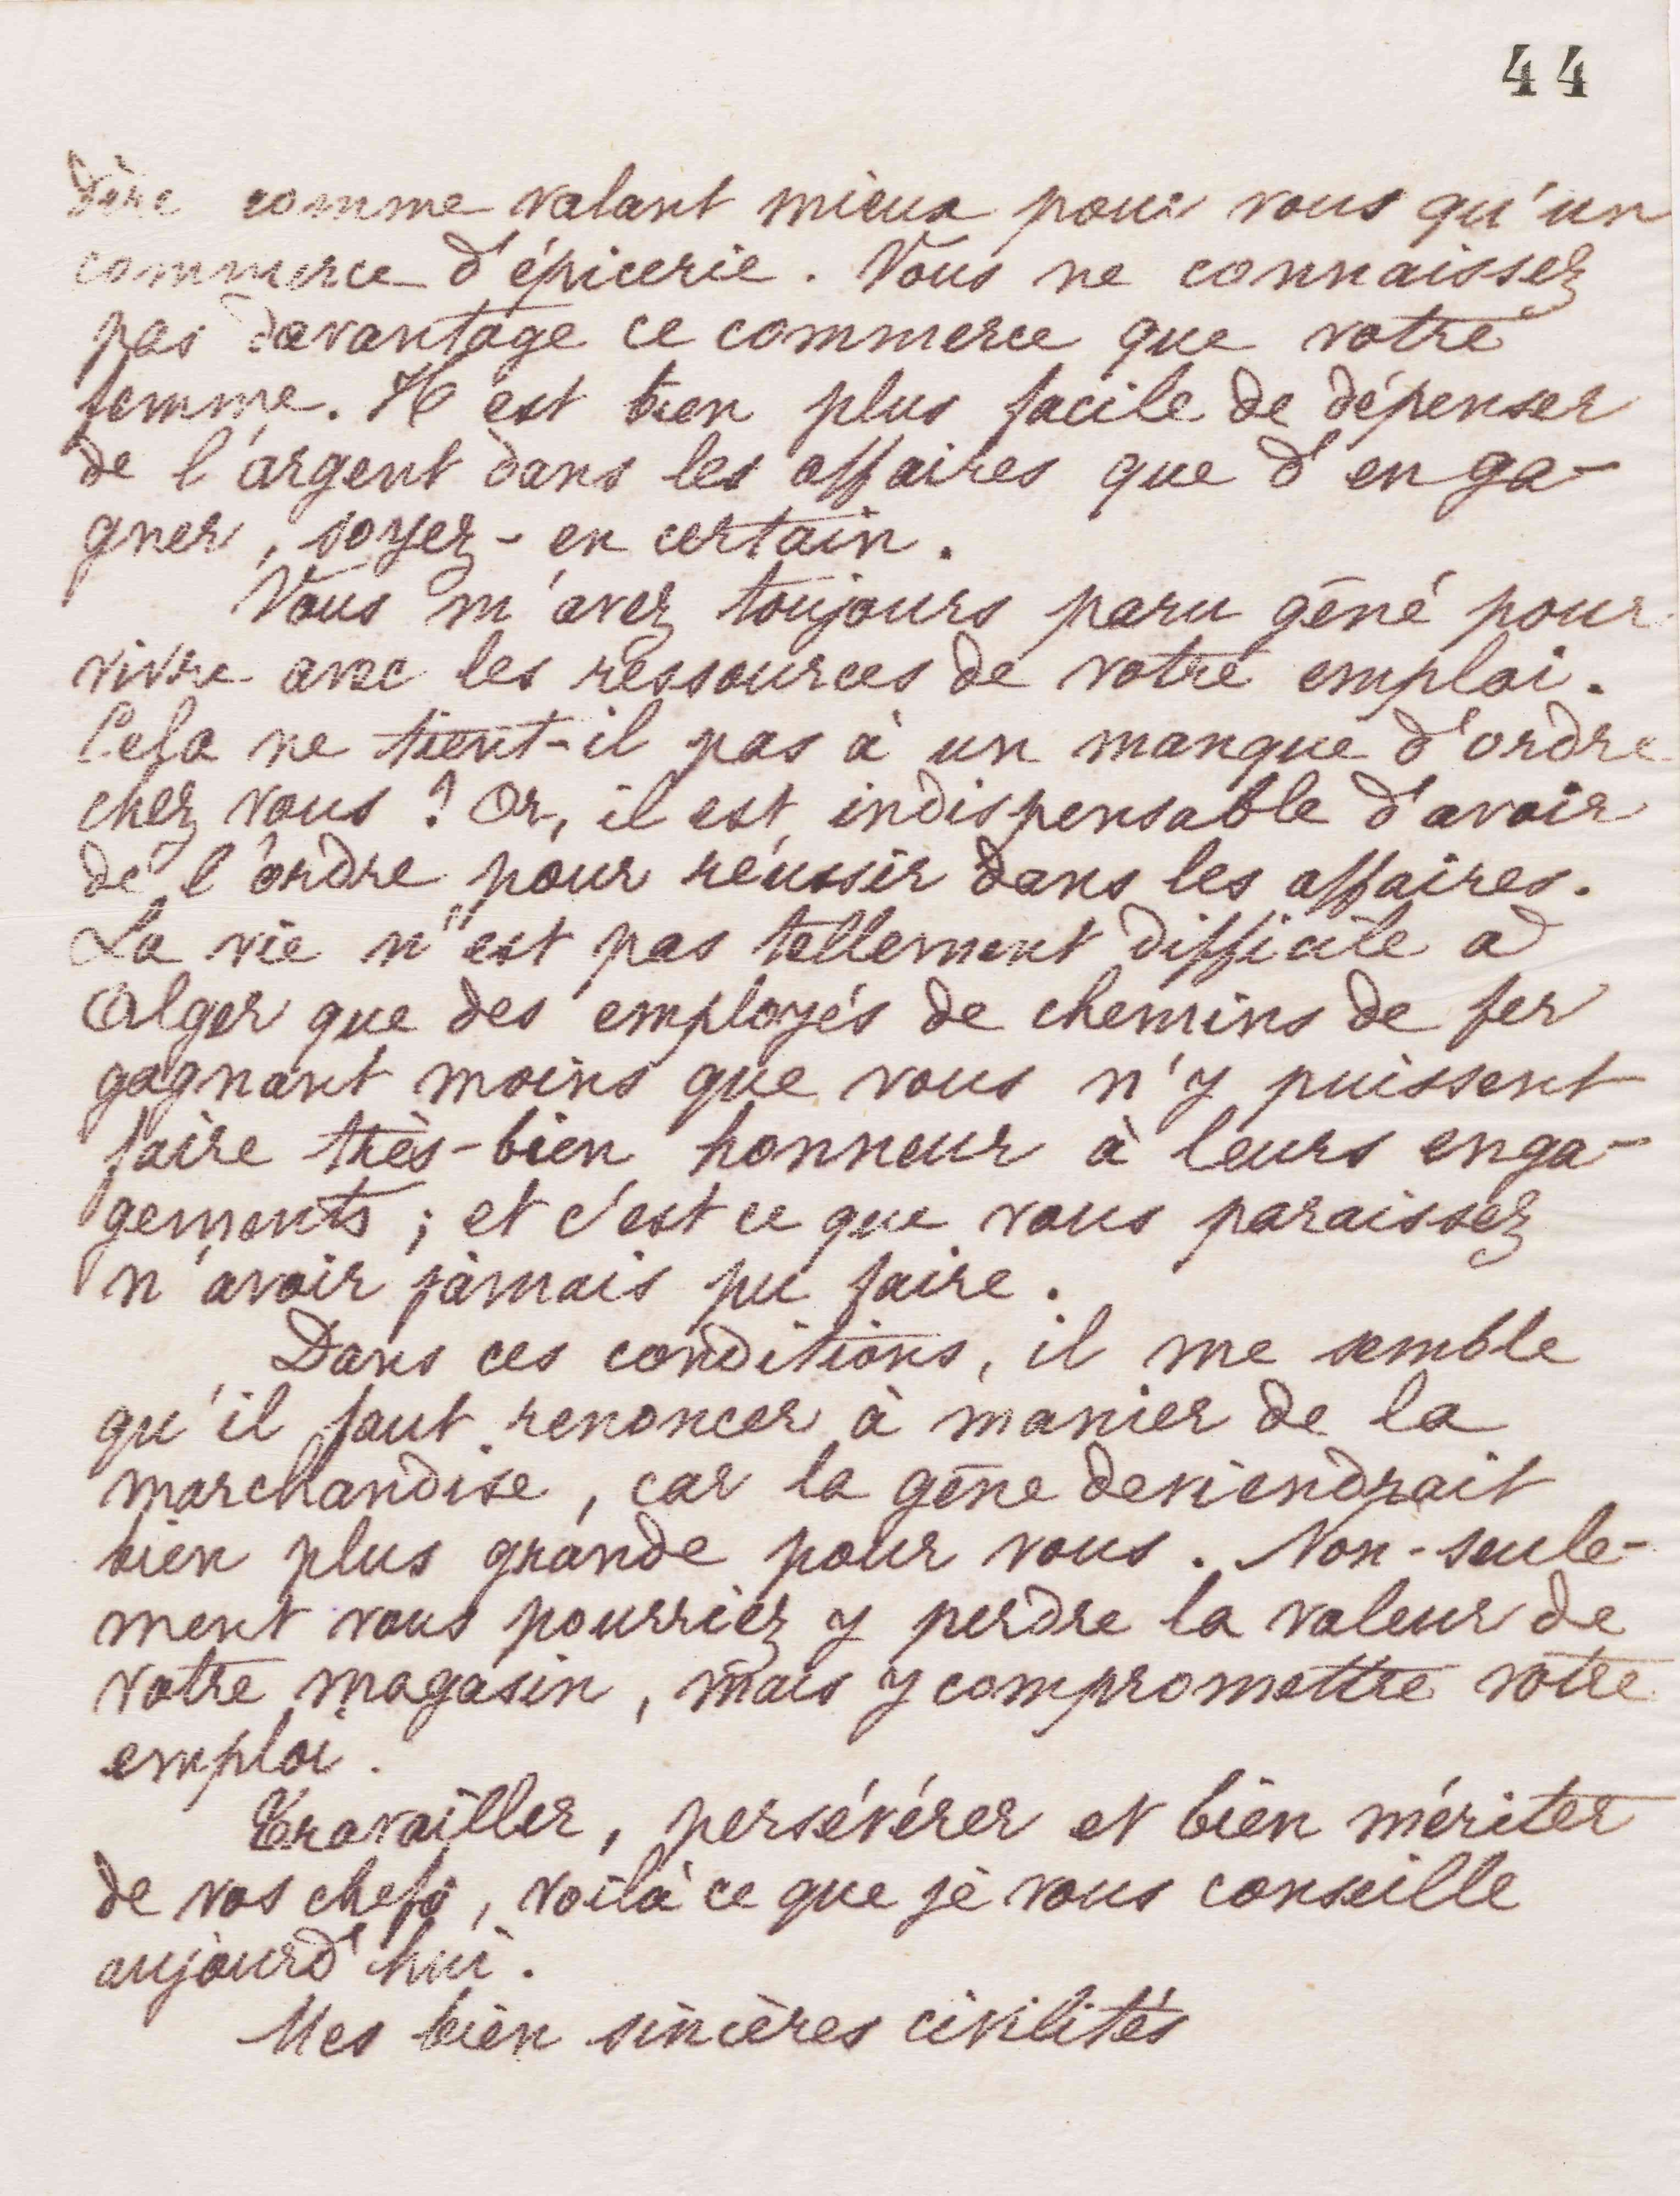 44
dère comme valant mieux pour vous qu'un
commerce d'épicerie. Vous ne connaissez
pas davantage ce commerce que votre
femme. Il est bien plus facile de dépenser
de l'argent dans les affaires que d'en ga-
gner, soyez-en certain.
Vous m'avez toujours paru gêné pour
vivre avec les ressources de votre emploi.
Cela ne tient-il pas à un manque d'ordre
chez vous ? Or, il est indispensable d'avoir
de l'ordre pour réussir dans les affaires.
La vie n'est pas tellement difficile à
Alger que des employés de chemins de fer
gagnant moins que vous n'y puissent
faire très-bien honneur à leurs enga-
gements ; et c'est ce que vous paraissez
n'avoir jamais pu faire.
Dans ces conditions, il me semble
qu'il faut renoncer à manier de la
marchandise, car la gêne deviendrait
bien plus grande pour vous. Non-seule-
ment vous pourriez y perdre la valeur de
votre magasin, mais y compromettre votre
emploi.
Travailler, persévérer et bien mériter
de vos chefs, voilà ce que je vous conseille
aujourd'hui.
Mes bien sincères civilités